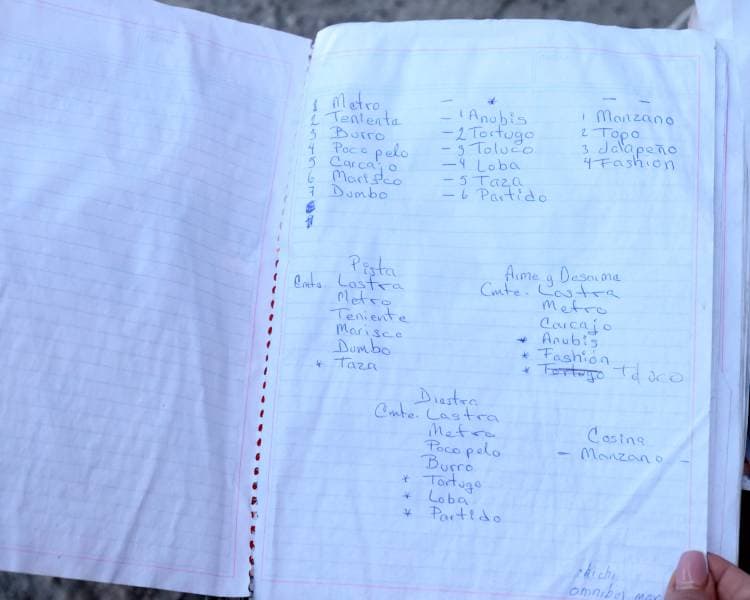 1 Metro
2 Teniente
3 Burro
4 Pocopelo
5 Carcajo
6 Marisco
7 Dumbo
8
9
- *
- 1 Anubis
- 2 Tortugo
- 3 Toluco
- 4 Loba
- 5 Taza
- 6 Partido
- -
1 Manzano
2 Topo
3 Jalapeño
4 Fashion
Pista
Cmte. Lastra
Metro
Teniente
Marisco
Dumbo
* Taza
Aime y Desaima
Cmte. Lastra
Metro
Carcajo
* Anubis
* Fashión
* Tortugo Toluco
Diestra
Cmte. Lastra
Metro
Pocopelo
Burro
* Tortugo
* Loba
* Partido
Cosina
- Manzano -
omnibel mar